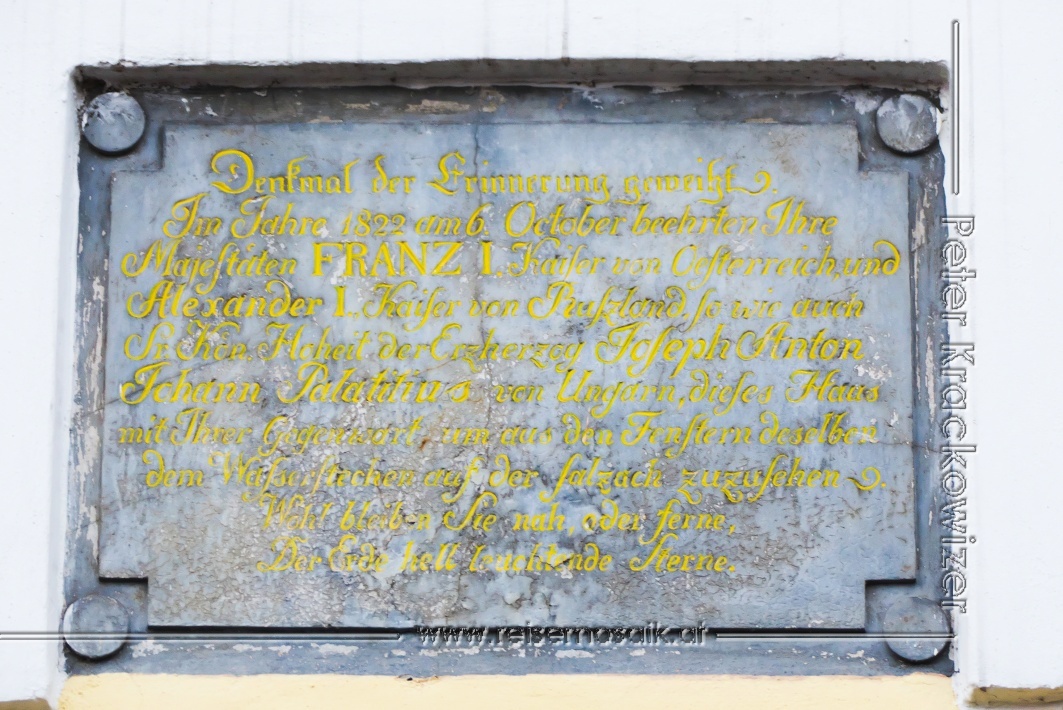 Denkmal der Erinnerung geweiht.
Im Jahre 1822 am 6. October beehrten Ihre
Majeſtäten FRANZ I., Kaiſer von Oeſterreich, und
Alexander I., Kaiſer von Ruſzland, ſo wie auch
Sr. Kön. Hoheit der Erzherzog Joſeph Anton
Johann Palatitius von Ungarn, dieſes Haus
mit Ihrer Gegenwart um aus den Fenſtern deselben
dem Waſſerſtechen auf der ſalzach zuzuſehen.
Wohl bleiben Sie nah, oder ferne,
Der Erde hell leuchtende Sterne.
www.reisemosaik.at
Peter Krackowizer